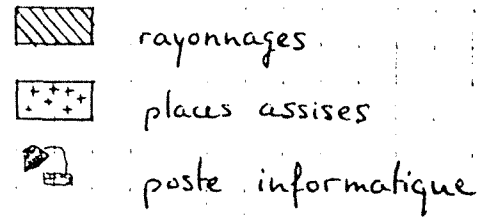 rayonnages
places assises
poste informatique